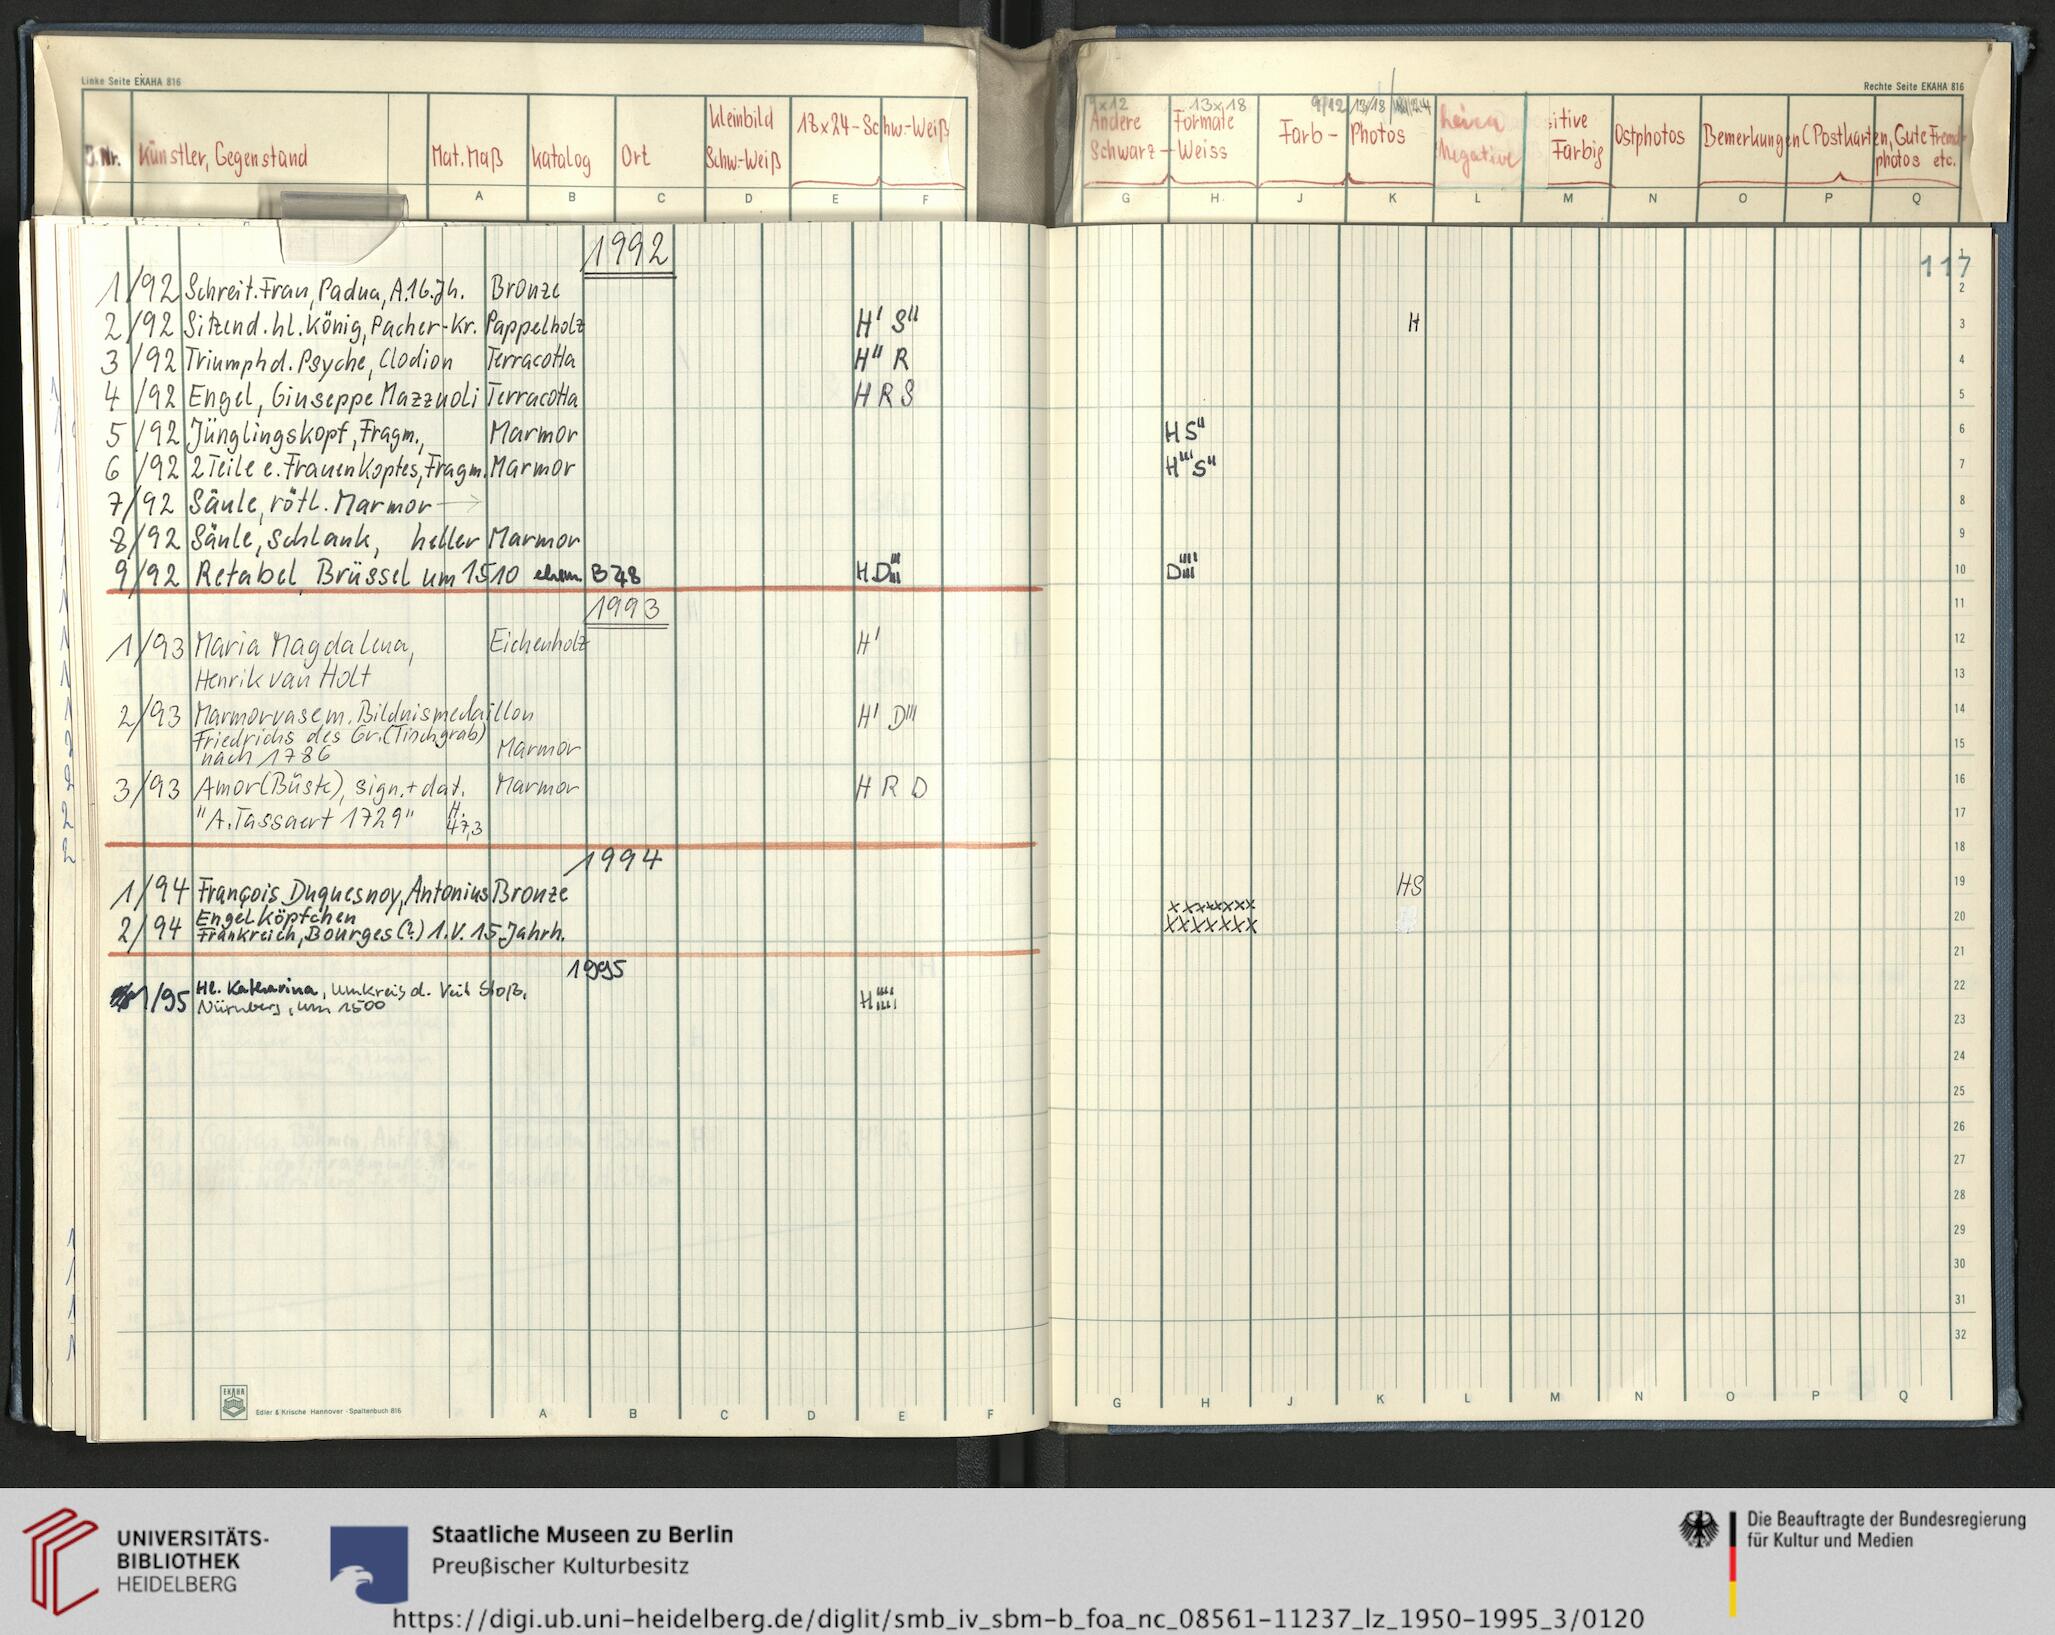 Linke Seite EKAHA 816
J.Nr. Künstler, Gegenstand Mat. Maß Katalog Ort Kleinbild Schw.-Weiß 18x24-Schw.-Weiß
A B C D E F
Rechte Seite EKAHA 816
9x12 13x18 9/12 13/18
Andere Formate Schwarz-Weiss Farb-Photos Leica Negative itive Farbig Ostphotos Bemerkungen (Postkarten, Gute Fremdphotos etc.
G H J K L M N O P Q
117
1992
1/92 Schreit. Frau, Padua, A.16.Jh. Bronze
2/92 Sitzend. hl. König, Pacher-Kr. Pappelholz H' S" H
3/92 Triumph d. Psyche, Clodion Terracotta H" R
4/92 Engel, Giuseppe Mazzuoli Terracotta H R S
5/92 Jünglingskopf, Fragm., Marmor H S"
6/92 2 Teile e. Frauenkopfes, Fragm. Marmor H''' S"
7/92 Säule, rötl. Marmor →
8/92 Säule, schlank, heller Marmor
9/92 Retabel, Brüssel um 1510 ehem. B 78 H D D
1993
1/93 Maria Magdalena, Eichenholz H'
Henrik van Holt
2/93 Marmorvase m. Bildnismedaillon H' D'''
Friedrichs des Gr. (Tischgrab)
nach 1786 Marmor
3/93 Amor (Büste), sign. + dat. Marmor H R D
"A. Tassaert 1729" H. 47,3
1994
1/94 François Duquesnoy, Antonius Bronze HS
Engelköpfchen xxxxxxx
2/94 Frankreich, Bourges (?) 1.V. 15. Jahrh. xxxxxxx
1995
1/95 Hl. Katharina, Umkreis d. Veit Stoß, H
Nürnberg, um 1500
1
2
3
4
5
6
7
8
9
10
11
12
13
14
15
16
17
18
19
20
21
22
23
24
25
26
27
28
29
30
31
32
EKAHA
Edler & Krische Hannover - Spaltenbuch 816
A B C D E F
G H J K L M N O P Q
UNIVERSITÄTS-
BIBLIOTHEK
HEIDELBERG
Staatliche Museen zu Berlin
Preußischer Kulturbesitz
Die Beauftragte der Bundesregierung
für Kultur und Medien
https://digi.ub.uni-heidelberg.de/diglit/smb_iv_sbm-b_foa_nc_08561-11237_lz_1950-1995_3/0120